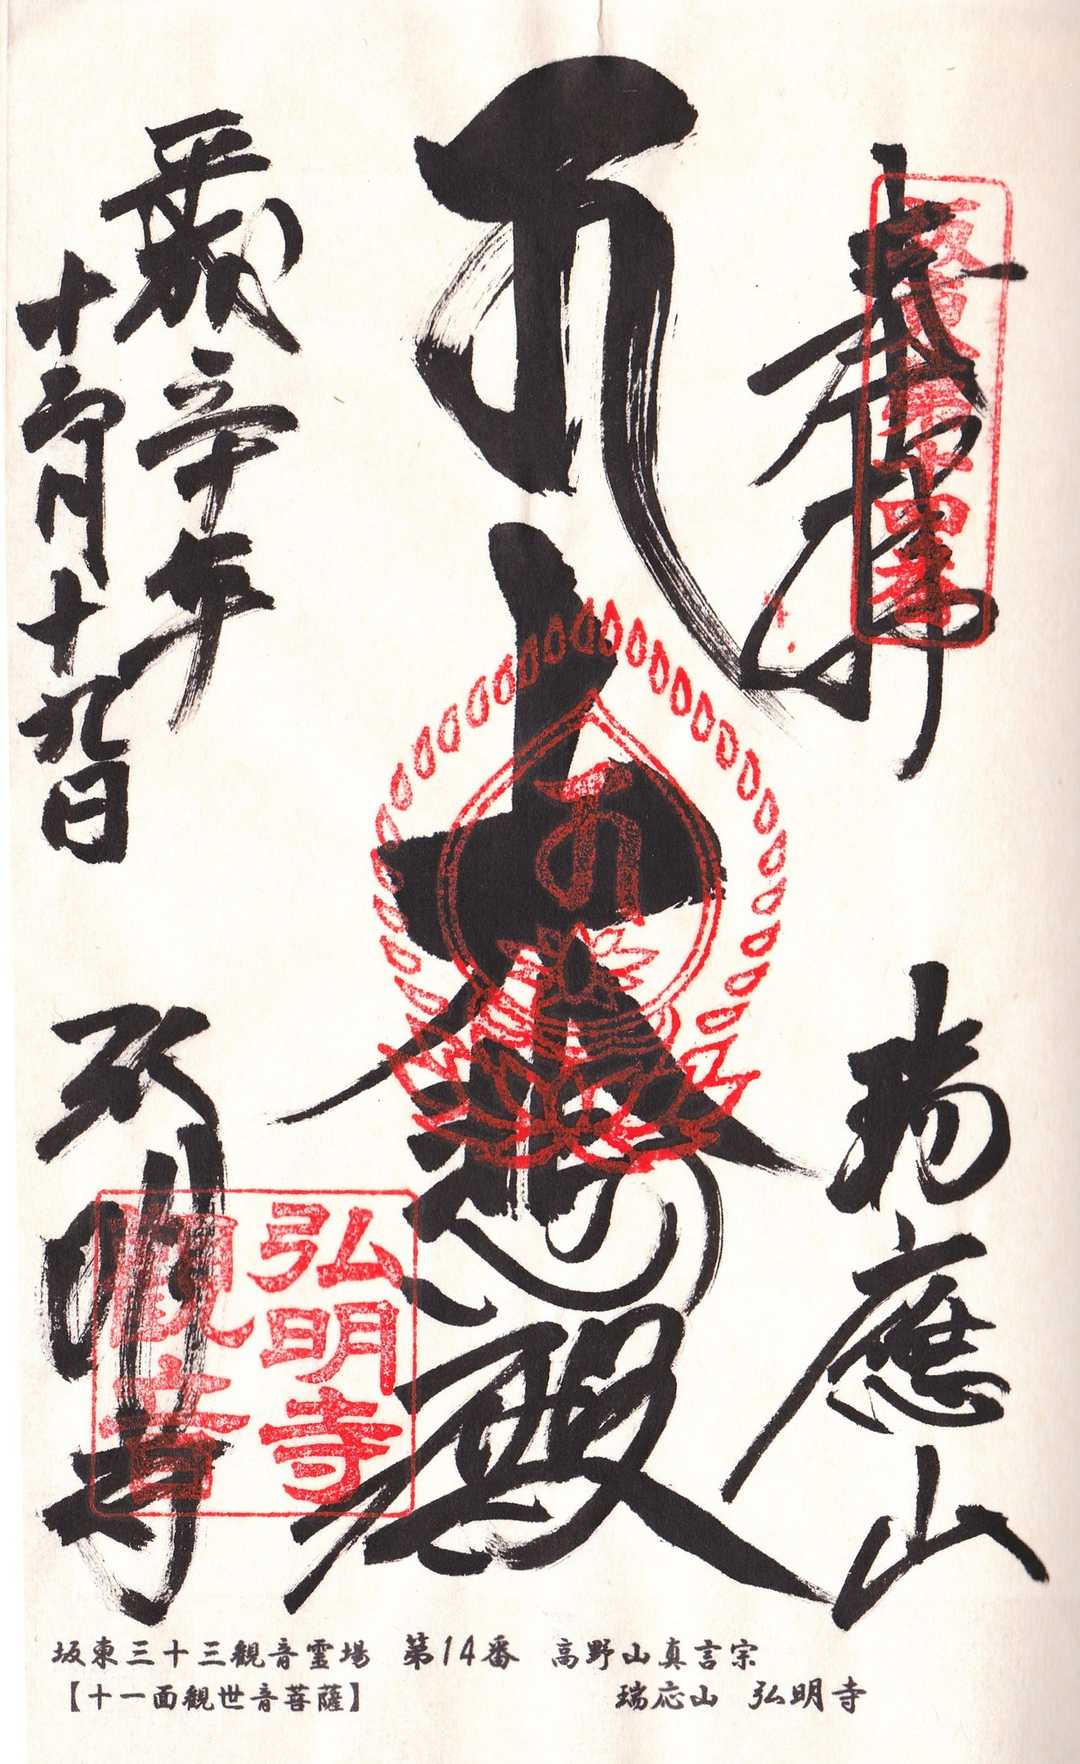 奉拝 瑞應山
坂東第十四番
大悲殿
平成
十二月十九日
弘明寺
弘明寺
觀音
坂東三十三観音霊場 第14番 高野山真言宗
【十一面観世音菩薩】 瑞応山 弘明寺